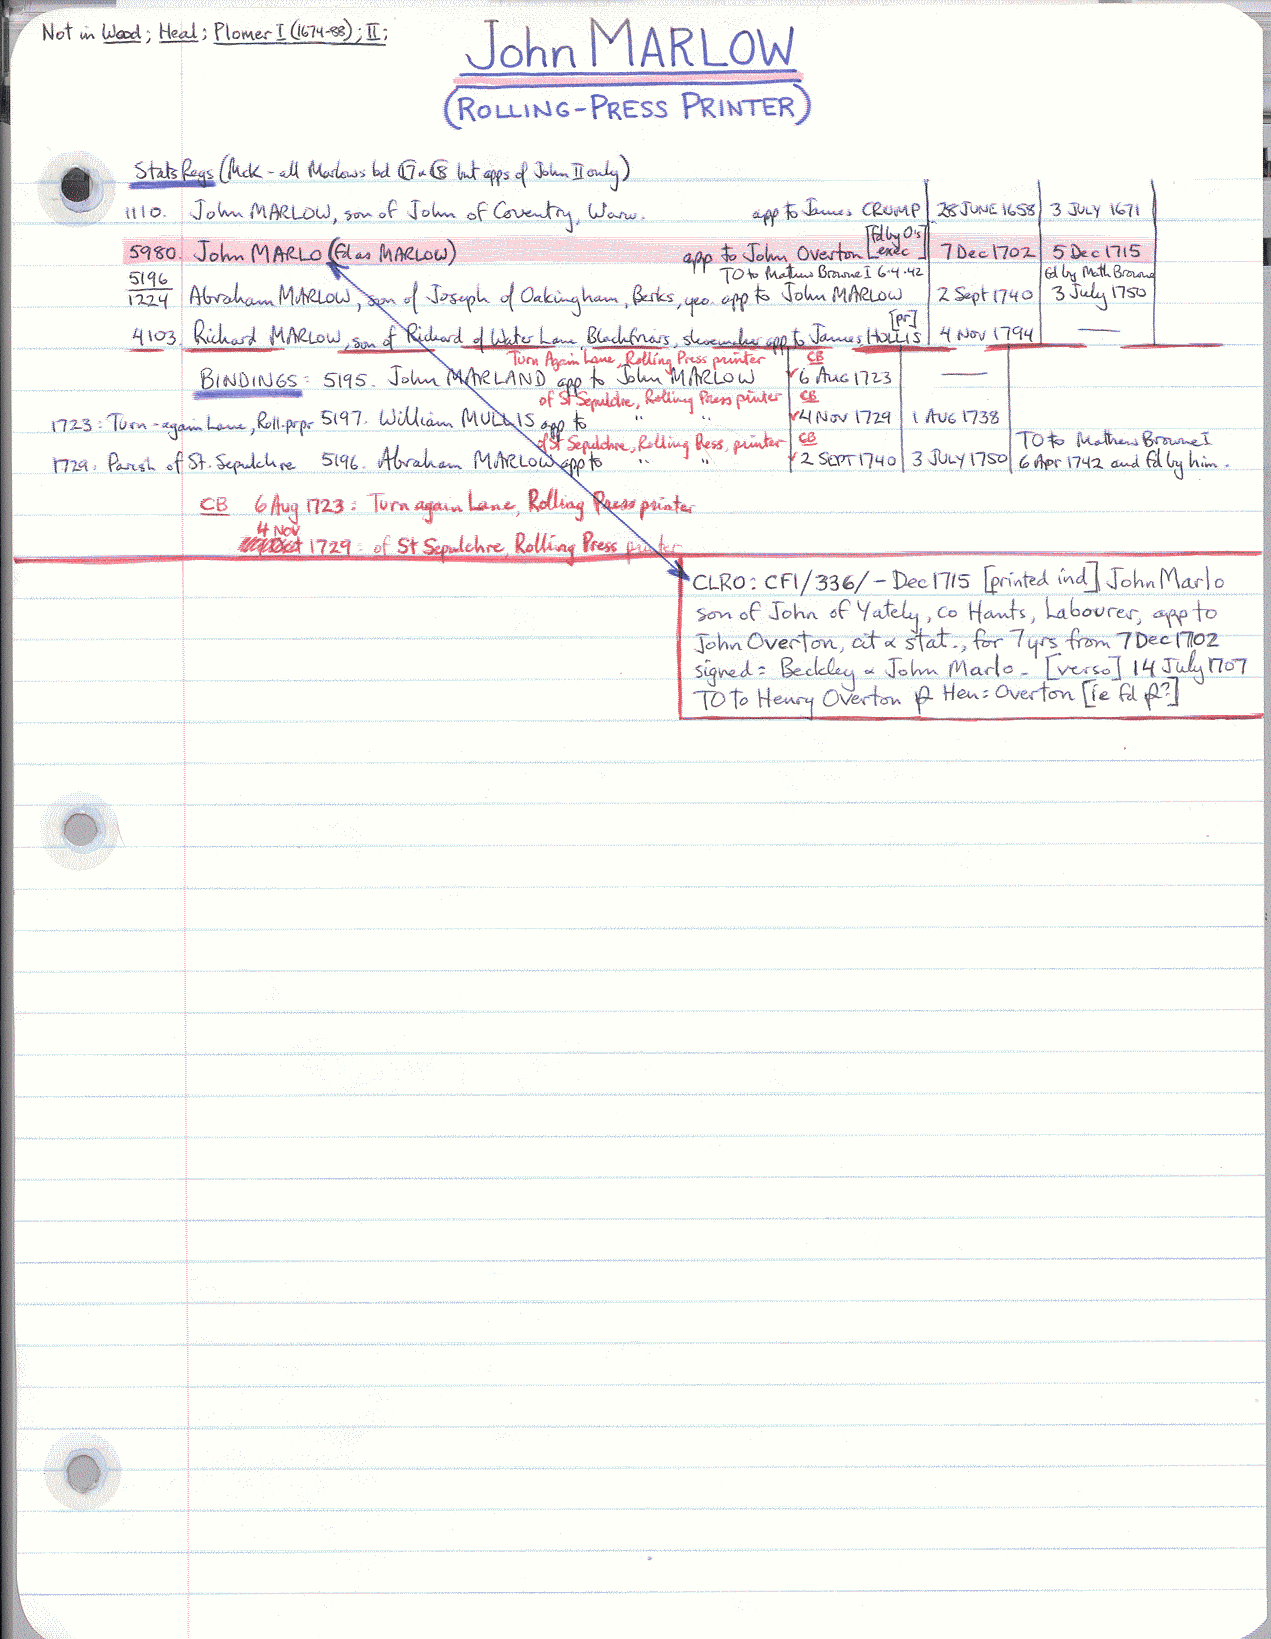 Not in Wood; Heal; Plomer I (1674-88); II;
John MARLOW
(ROLLING-PRESS PRINTER)
Stats Regs (McK - all Marlows bd C17 & C18 but apps of John II only)
1110. John MARLOW, son of John of Coventry, Warw. app to James CRUMP 28 JUNE 1658 3 JULY 1671
[fd by O's exec]
5980. John MARLO (fd as MARLOW) app to John Overton 7 Dec 1702 5 Dec 1715
5196 TO to Mathew Browne I 6.4.42 fd by Math Browne
1224 Abraham MARLOW, son of Joseph of Oakingham, Berks, yeo. app to John MARLOW 2 Sept 1740 3 July 1750
[pr]
4103. Richard MARLOW, son of Richard of Water Lane, Blackfriars, shoemaker app to James HOLLIS 4 Nov 1794 —
Turn Again Lane, Rolling Press printer CB
BINDINGS: 5195. John MARLAND app to John MARLOW ✓6 AUG 1723 —
of St Sepulchre, Rolling Press printer CB
1723: Turn-again Lane, Roll-prpr 5197. William MULLIS app to " " ✓4 NOV 1729 1 AUG 1738
of St Sepulchre, Rolling Press, printer CB TO to Mathew Browne I
1729: Parish of St. Sepulchre 5196. Abraham MARLOW app to " " ✓2 SEPT 1740 3 JULY 1750 6 Apr 1742 and fd by him.
CB 6 Aug 1723: Turn again Lane, Rolling Press printer
4 Nov
1729: of St Sepulchre, Rolling Press printer
CLRO: CF1/336/- Dec 1715 [printed ind] John Marlo
son of John of Yately, co Hants, Labourer, app to
John Overton, cit & stat., for 7 yrs from 7 Dec 1702
signed = Beckley & John Marlo - [verso] 14 July 1707
TO to Henry Overton p Hen: Overton [ie fd p?]